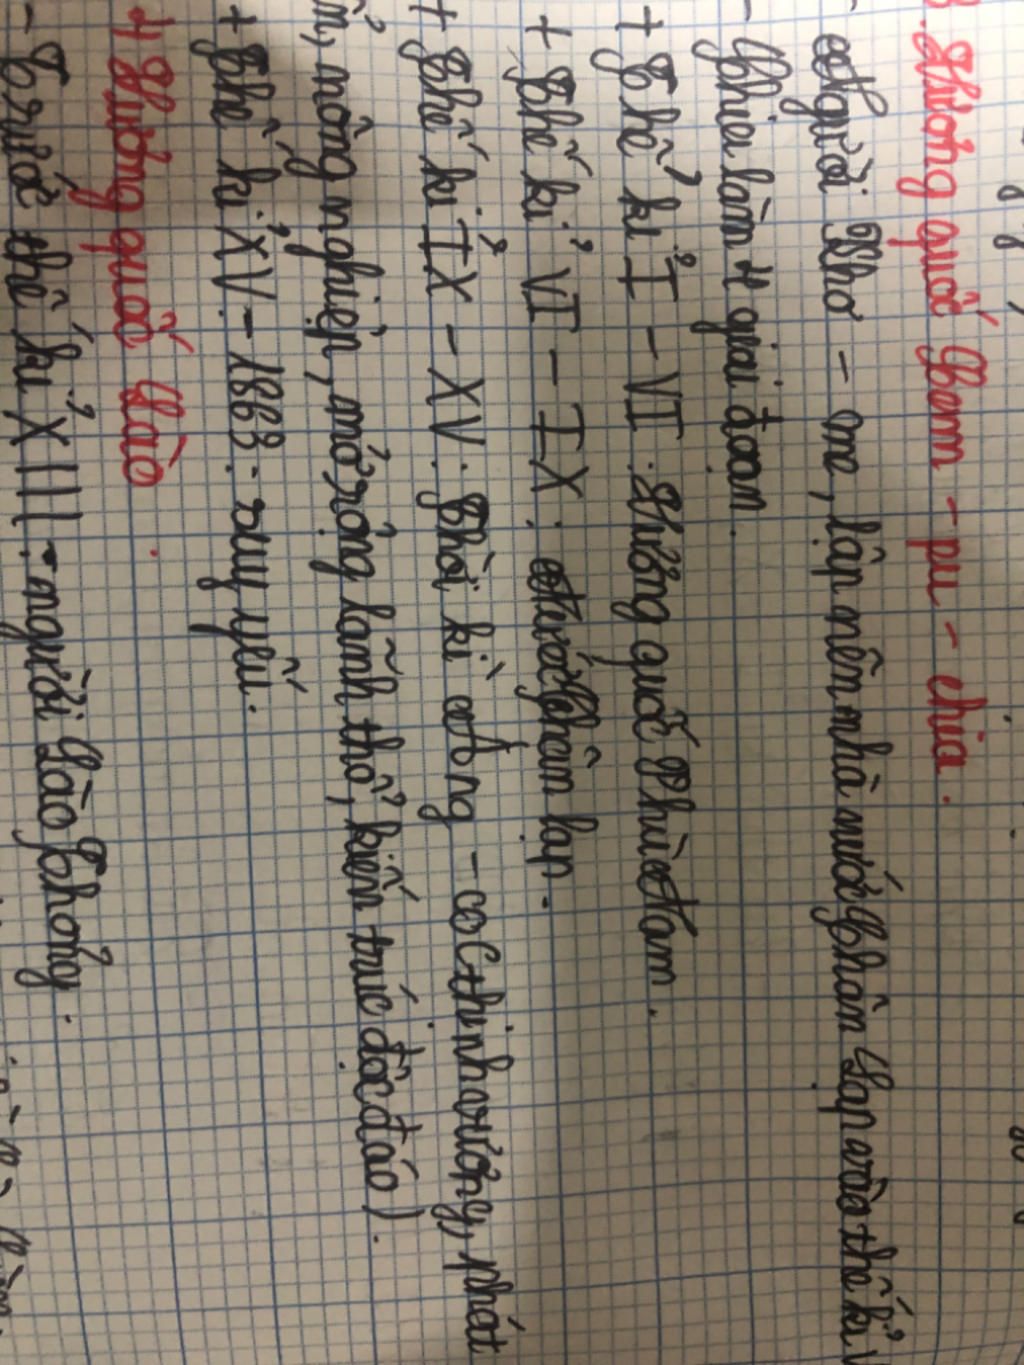 3. Vương quốc Cam - pu - chia.
- Người Khơ - me, lập nên nhà nước Chân Lạp vào thế kỉ V
- Chia làm 4 giai đoạn.
+ Thế kỉ I - VI : Vương quốc Phù Nam.
+ Thế kỉ VI - IX : nước Chân Lạp.
+ Thế kỉ IX - XV : Thời kì Ăng - co (thịnh vượng, phát
nông nghiệp, mở rộng lãnh thổ, kiến trúc độc đáo).
+ Thế kỉ XV - 1863 : suy yếu.
4 Vương quốc Lào.
- Trước thế kỉ XIII : người Lào Thơng.